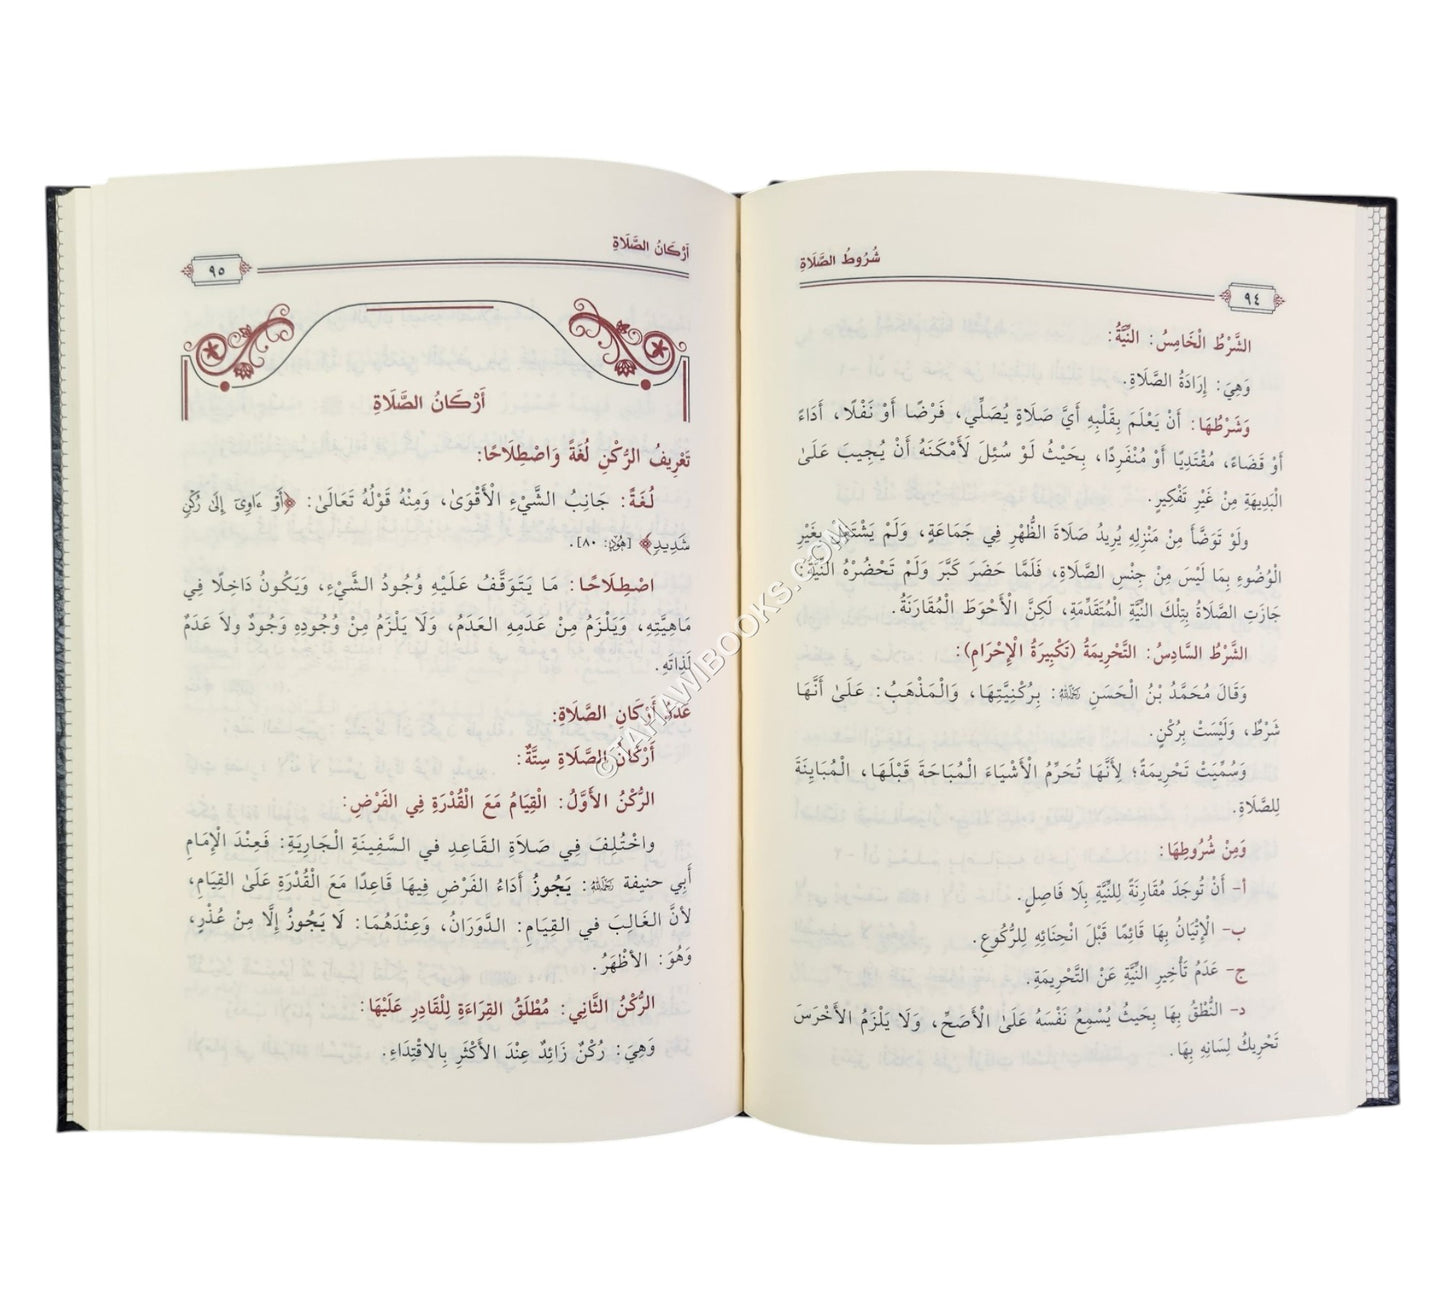 شُرُوطُ الصَّلَاةِ
٩٤
الشَّرْطُ الْخَامِسُ: النِّيَّةُ:
وَهِيَ: إِرَادَةُ الصَّلَاةِ.
وَشَرْطُهَا: أَنْ يَعْلَمَ بِقَلْبِهِ أَيَّ صَلَاةٍ يُصَلِّي، فَرْضًا أَوْ نَفْلًا، أَدَاءً
أَوْ قَضَاءً، مُقْتَدِيًا أَوْ مُنْفَرِدًا، بِحَيْثُ لَوْ سُئِلَ لَأَمْكَنَهُ أَنْ يُجِيبَ عَلَىٰ
الْبَدِيهَةِ مِنْ غَيْرِ تَفْكِيرٍ.
ولَوْ تَوَضَّأَ مِنْ مَنْزِلِهِ يُرِيدُ صَلَاةَ الظُّهْرِ فِي جَمَاعَةٍ، وَلَمْ يَشْتَغِلْ بِغَيْرِ
الْوُضُوءِ بِمَا لَيْسَ مِنْ جِنْسِ الصَّلَاةِ، فَلَمَّا حَضَرَ كَبَّرَ وَلَمْ تَحْضُرْهُ النِّيَّةُ:
جَازَتِ الصَّلَاةُ بِتِلْكَ النِّيَّةِ الْمُتَقَدِّمَةِ، لَكِنَّ الْأَحْوَطَ الْمُقَارَنَةُ.
الشَّرْطُ السَّادِسُ: التَّحْرِيمَةُ (تَكْبِيرَةُ الْإِحْرَامِ):
وَقَالَ مُحَمَّدُ بْنُ الْحَسَنِ رَحِمَهُ اللَّهُ: بِرُكْنِيَّتِهَا، وَالْمَذْهَبُ: عَلَىٰ أَنَّهَا
شَرْطٌ، وَلَيْسَتْ بِرُكْنٍ.
وَسُمِّيَتْ تَحْرِيمَةً؛ لِأَنَّهَا تُحَرِّمُ الْأَشْيَاءَ الْمُبَاحَةَ قَبْلَهَا، الْمُبَايِنَةَ
لِلصَّلَاةِ.
وَمِنْ شُرُوطِهَا:
أ- أَنْ تُوجَدَ مُقَارِنَةً لِلنِّيَّةِ بِلَا فَاصِلٍ.
ب- الْإِتْيَانُ بِهَا قَائِمًا قَبْلَ انْحِنَائِهِ لِلرُّكُوعِ.
ج- عَدَمُ تَأْخِيرِ النِّيَّةِ عَنْ التَّحْرِيمَةِ.
د- النُّطْقُ بِهَا بِحَيْثُ يُسْمِعُ نَفْسَهُ عَلَىٰ الْأَصَحِّ، وَلَا يَلْزَمُ الأَخْرَسَ
تَحْرِيكُ لِسَانِهِ بِهَا.
أَرْكَانُ الصَّلَاةِ
٩٥
أَرْكَانُ الصَّلَاةِ
تَعْرِيفُ الرُّكْنِ لُغَةً وَاصْطِلَاحًا:
لُغَةً: جَانِبُ الشَّيْءِ الْأَقْوَىٰ، وَمِنْهُ قَوْلُهُ تَعَالَىٰ: ﴿أَوْ ءَاوِىٓ إِلَىٰ رُكْنٍ
شَدِيدٍ﴾ [هُودٍ: ٨٠].
اصْطِلَاحًا: مَا يَتَوَقَّفُ عَلَيْهِ وُجُودُ الشَّيْءِ، وَيَكُونُ دَاخِلًا فِي
مَاهِيَّتِهِ، وَيَلْزَمُ مِنْ عَدَمِهِ العَدَمُ، وَلَا يَلْزَمُ مِنْ وُجُودِهِ وَجُودٌ ولاَ عَدَمٌ
لَذَاتَهِ.
عَدَدُ أَرْكَانِ الصَّلَاةِ:
أَرْكَانُ الصَّلَاةِ سِتَّةٌ:
الرُّكْنُ الأَوَّلُ: الْقِيَامُ مَعَ الْقُدْرَةِ فِي الفَرْضِ:
واخْتُلِفَ فِي صَلَاةِ القَاعِدِ في السَّفِينَةِ الْجَارِيَةِ: فَعِنْدَ الْإِمَامِ
أَبِي حنيفة رَحِمَهُ اللَّهُ: يَجُوزُ أَدَاءُ الفَرْضِ فِيهَا قَاعِدًا مَعَ الْقُدْرَةِ عَلَىٰ القِيَامِ،
لأنَّ الغَالِبَ في القِيَامِ: الدَّوَرَانُ، وَعِنْدَهُمَا: لَا يَجُوزُ إِلَّا مِنْ عُذْرٍ،
وَهُوَ: الأَظْهَرُ.
الرُّكْنُ الثَّانِي: مُطْلَقُ القِرَاءَةِ لِلْقَادِرِ عَلَيْهَا:
وَهِيَ: رُكْنٌ زَائِدٌ عِنْدَ الأَكْثَرِ بِالاقْتِدَاءِ.
©TAHAWIBOOKS.COM